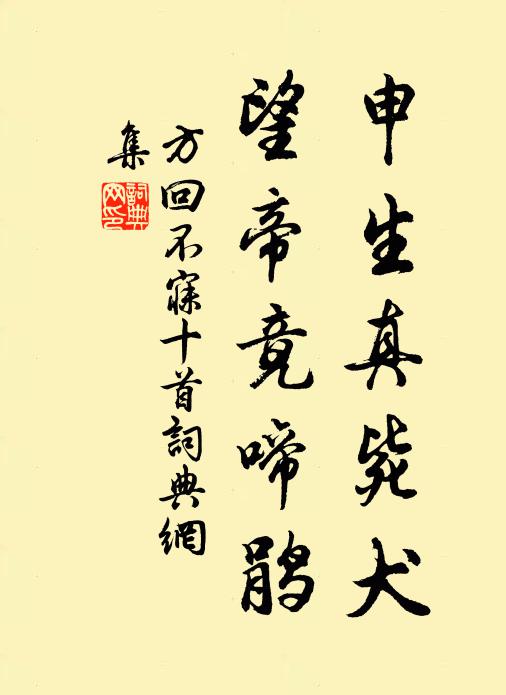 申生真毙犬
望帝竟啼鹃
方回不寐十首詞典網
集
詞典
网印